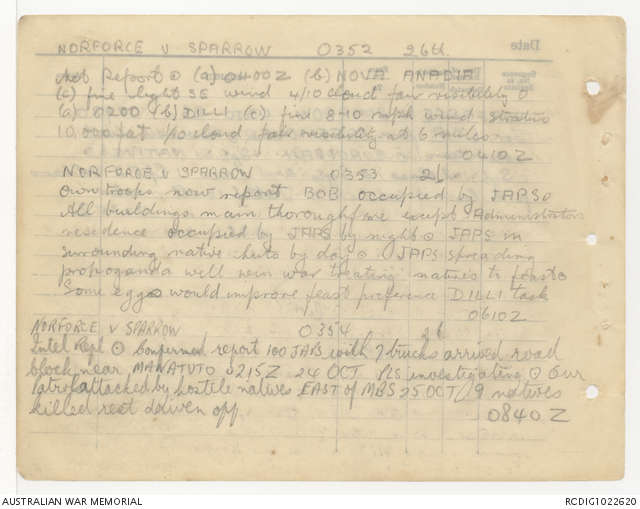 NORFORCE V SPARROW 0352 26th
Met Report ⊙ (a) 0400Z (b) NOVA ANADIA
(c) fine light SE wind 4/10 cloud fair visibility ⊙
(a) 0200 (b) DILLI (c) fine 8-10 mph wind strato
10,000 feet /10 cloud fair visibility at 6 miles
0410Z
NORFORCE V SPARROW 0353 26
Own troops now report BOB occupied by JAPS ⊙
All buildings main thoroughfare except Administrators
residence occupied by JAPS by night ⊙ JAPS in
surrounding native huts by day ⊙ JAPS spreading
propaganda will win war treating natives to feast ⊙
Some eggs would improve feast preference DILLI task
0610Z
NORFORCE V SPARROW 0354 26
Intel Rept ⊙ Confirmed report 100 JAPS with 7 trucks arrived road
block near MANATUTO 1215Z 24 OCT investigating ⊙ Our
patrol attacked by hostile natives EAST of MBS 25 OCT 9 natives
killed rest driven off
0840Z
Date
AUSTRALIAN WAR MEMORIAL
RCDIG1022620